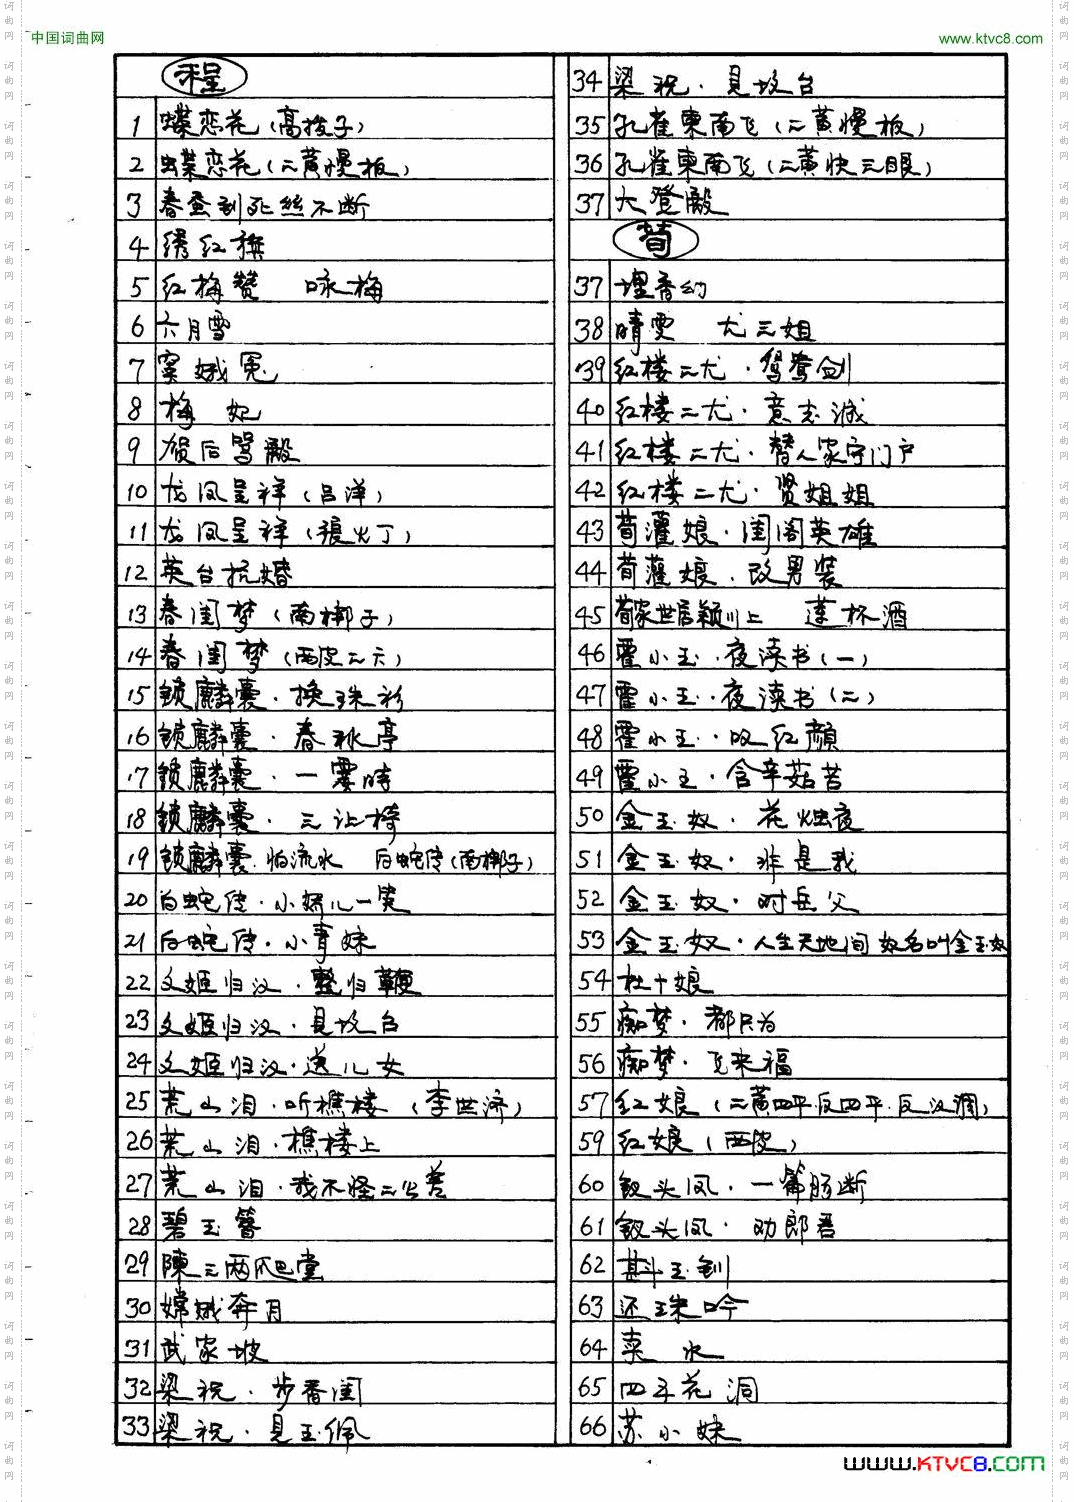 中国词曲网
www.ktvc8.com
程
1 蝶恋花(高拨子)
2 蝶恋花(二黄慢板)
3 春蚕到死丝不断
4 绣红旗
5 红梅赞 咏梅
6 六月雪
7 窦娥冤
8 梅妃
9 贺后骂殿
10 龙凤呈祥(吕洋)
11 龙凤呈祥(張火丁)
12 英台抗婚
13 春闺梦(南梆子)
14 春闺梦(西皮二六)
15 锁麟囊·换珠衫
16 锁麟囊·春秋亭
17 锁麟囊·一霎時
18 锁麟囊·三让椅
19 锁麟囊·怕流水 白蛇传(南梆子)
20 白蛇传·小娇儿一笑
21 白蛇传·小青妹
22 文姬归汉·整归鞭
23 文姬归汉·見坟台
24 文姬归汉·送儿女
25 荒山泪·听樵楼(李世济)
26 荒山泪·樵楼上
27 荒山泪·我不怪二公差
28 碧玉簪
29 陳三两爬堂
30 嫦娥奔月
31 武家坡
32 梁祝·步香闺
33 梁祝·見玉佩
34 梁祝·見坟台
35 孔雀東南飞(二黄慢板)
36 孔雀東南飞(二黄快三眼)
37 大登殿
荀
37 埋香幻
38 晴雯 尤三姐
39 红楼二尤·鸳鸯剑
40 红楼二尤·意志诚
41 红楼二尤·替人家守门户
42 红楼二尤·贤姐姐
43 荀灌娘·闺阁英雄
44 荀灌娘·改男装
45 荀家世居颖川上 莲杯酒
46 霍小玉·夜读书(一)
47 霍小玉·夜读书(二)
48 霍小玉·叹红颜
49 霍小玉·含辛菇苦
50 金玉奴·花烛夜
51 金玉奴·非是我
52 金玉奴·对岳父
53 金玉奴·人生天地间 奴名叫金玉奴
54 杜十娘
55 痴梦·都只为
56 痴梦·飞来福
57 红娘(二黄四平.反四平.反汉调)
59 红娘(西皮)
60 钗头凤·一篇肠断
61 钗头凤·劝郎君
62 斟玉钏
63 还珠吟
64 卖水
65 四平花洞
66 苏小妹
www.KTVC8.com